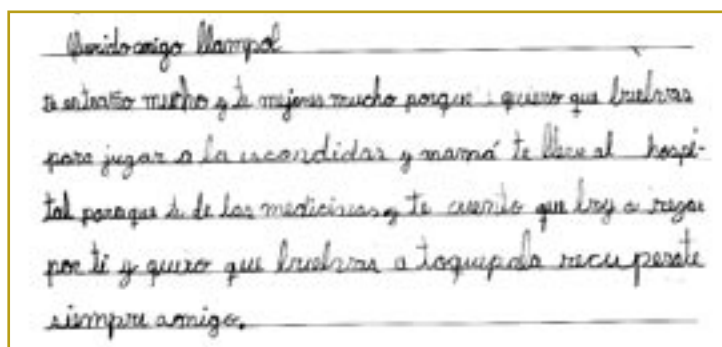 Querido amigo Llampol
te extraño mucho y te mejores mucho porque quiero que buelvas
para jugar a la escondidas y mamá te lleve al hospi-
tal paraque te de las medicinas y te cuento que boy a rezar
por ti y quiero que buelvas a toquepala recuperate
siempre amigo.